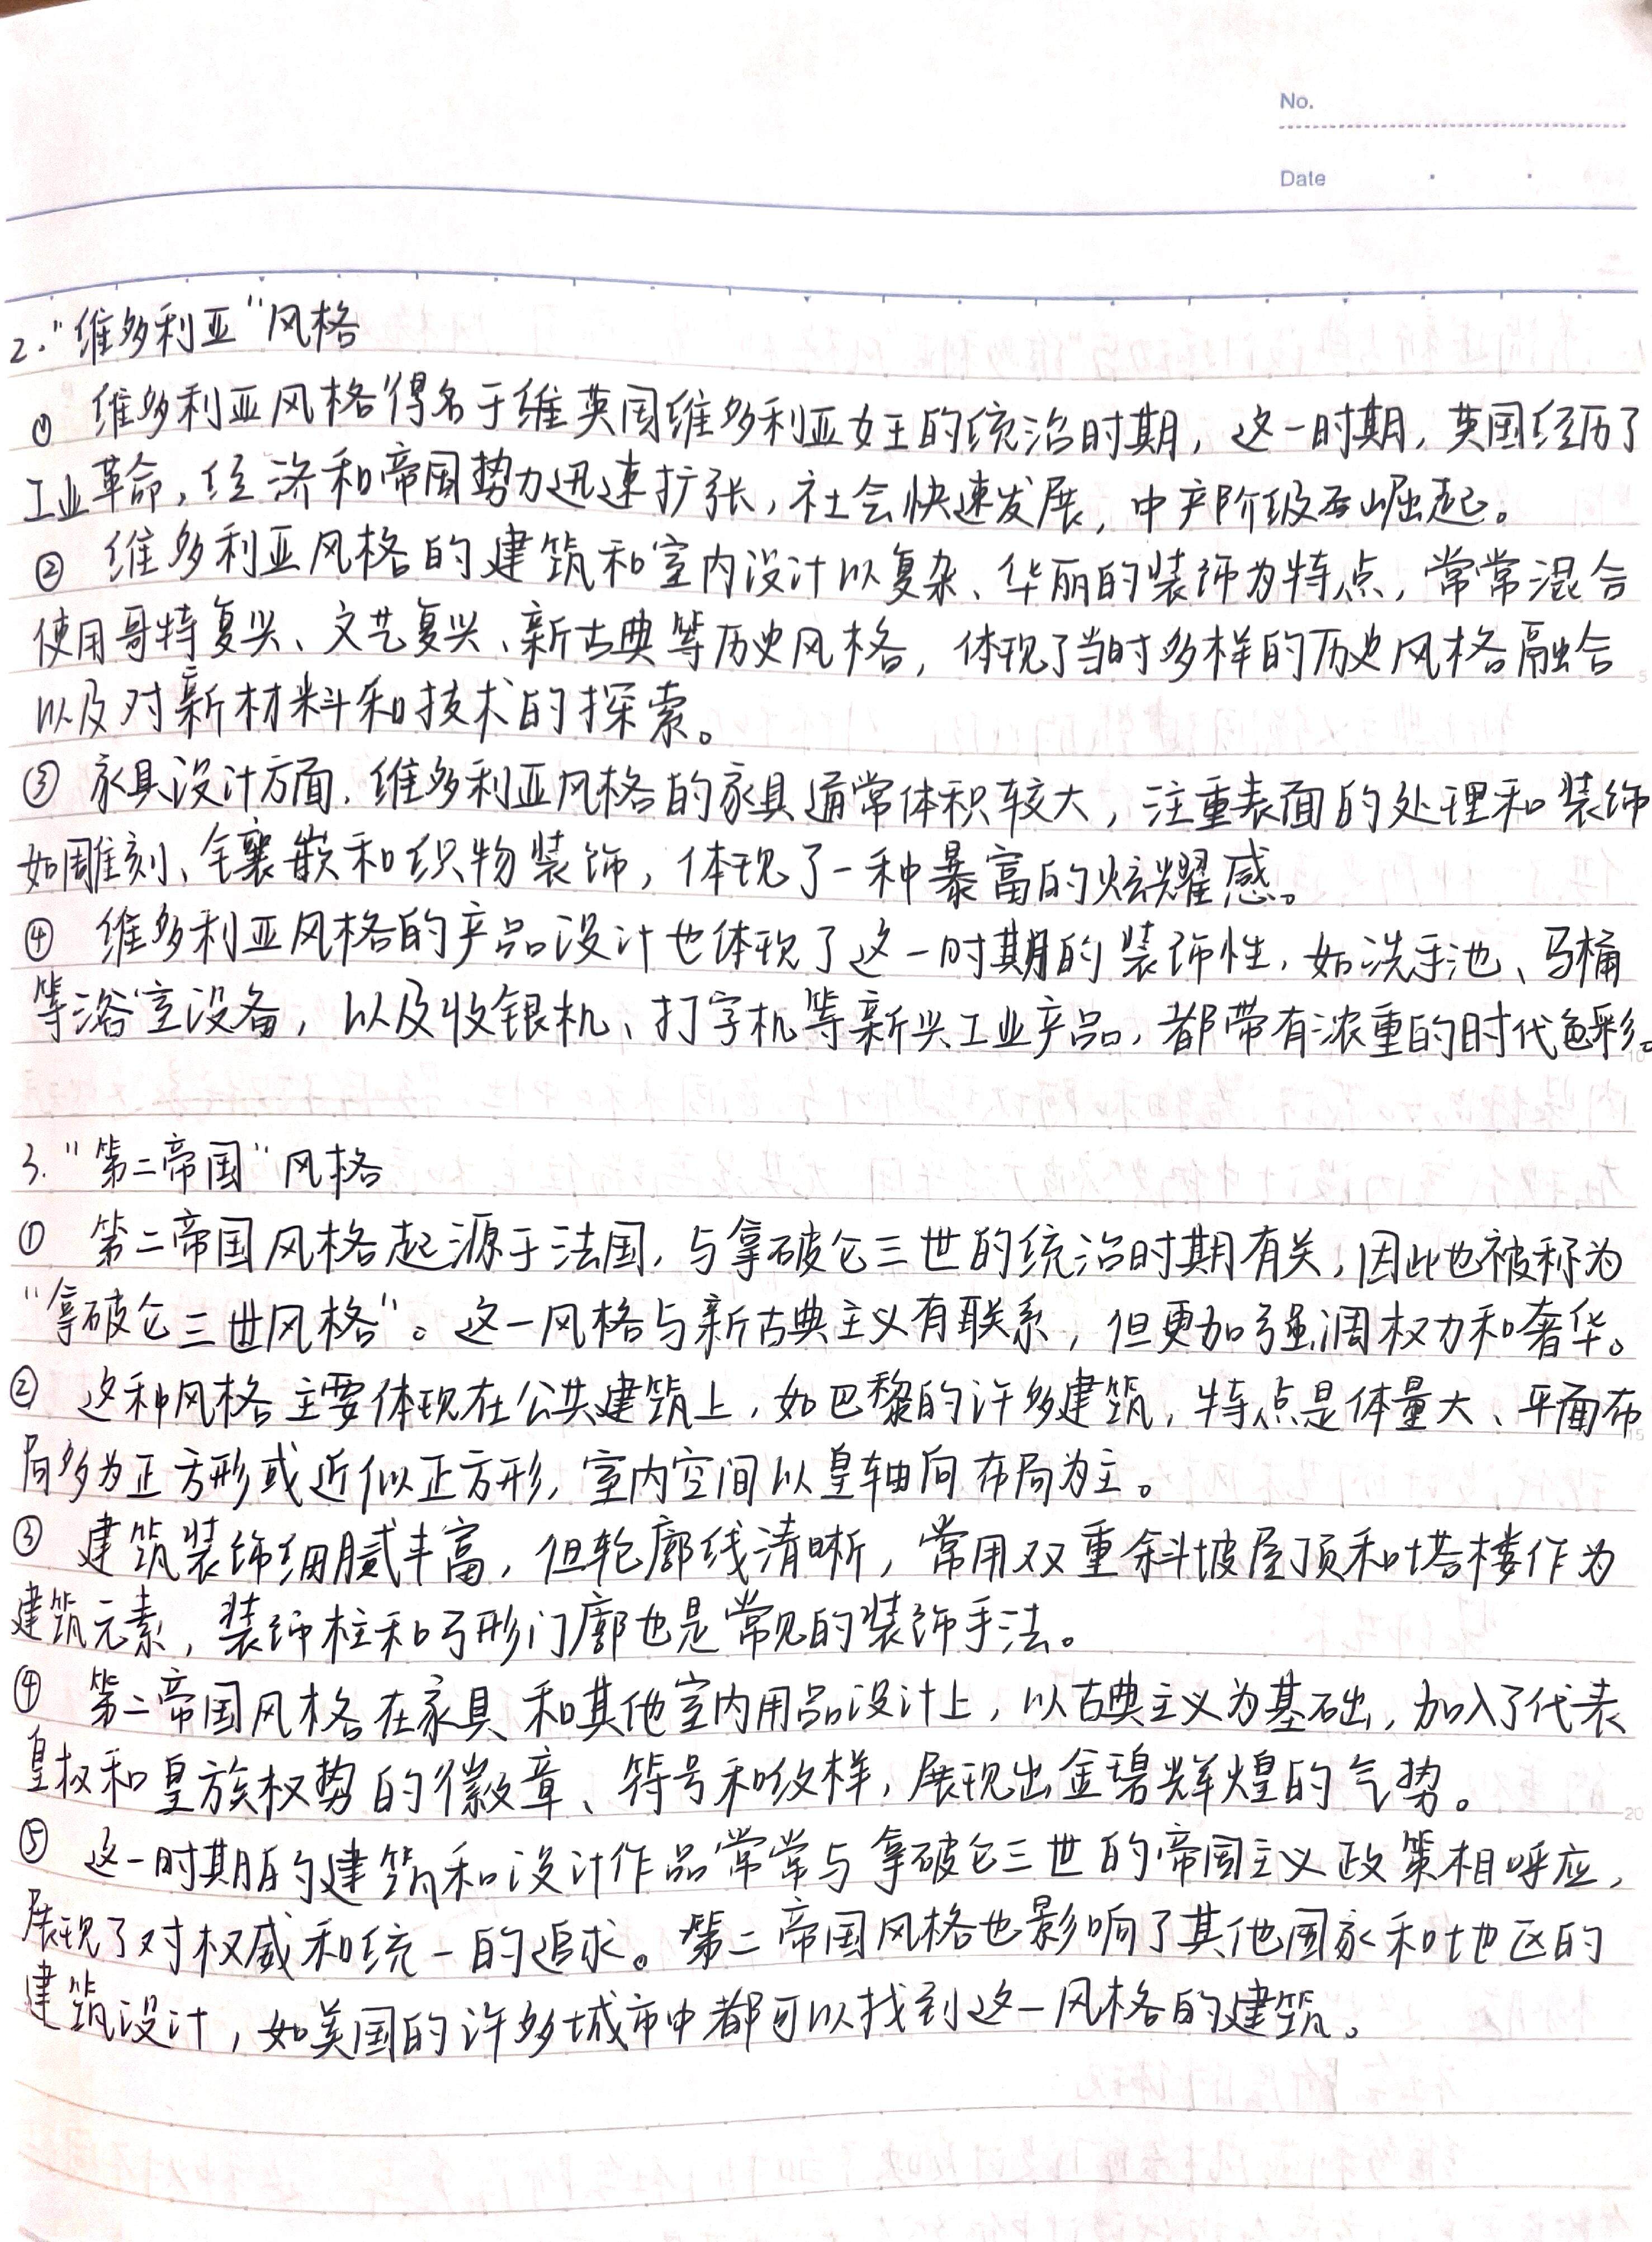 No.
Date
2."维多利亚"风格
① 维多利亚风格得名于维英国维多利亚女王的统治时期，这一时期，英国经历了
工业革命，经济和帝国势力迅速扩张，社会快速发展，中产阶级崛起。
② 维多利亚风格的建筑和室内设计以复杂、华丽的装饰为特点，常常混合
使用哥特复兴、文艺复兴、新古典等历史风格，体现了当时多样的历史风格融合
以及对新材料和技术的探索。
③ 家具设计方面，维多利亚风格的家具通常体积较大，注重表面的处理和装饰
如雕刻、镶嵌和织物装饰，体现了一种暴富的炫耀感。
④ 维多利亚风格的产品设计也体现了这一时期的装饰性，如洗手池、马桶
等浴室设备，以及收银机、打字机等新兴工业产品，都带有浓重的时代色彩。
3."第二帝国"风格
① 第二帝国风格起源于法国，与拿破仑三世的统治时期有关，因此也被称为
"拿破仑三世风格"。这一风格与新古典主义有联系，但更加强调权力和奢华。
② 这种风格主要体现在公共建筑上，如巴黎的许多建筑，特点是体量大、平面布
局多为正方形或近似正方形，室内空间以皇轴向布局为主。
③ 建筑装饰细腻丰富，但轮廓线清晰，常用双重斜坡屋顶和塔楼作为
建筑元素，装饰柱和弓形门廓也是常见的装饰手法。
④ 第二帝国风格在家具和其他室内用品设计上，以古典主义为基础，加入了代表
皇权和皇族权势的徽章、符号和纹样，展现出金碧辉煌的气势。
⑤ 这一时期的建筑和设计作品常常与拿破仑三世的帝国主义政策相呼应，
展现了对权威和统一的追求。第二帝国风格也影响了其他国家和地区的
建筑设计，如美国的许多城市中都可以找到这一风格的建筑。